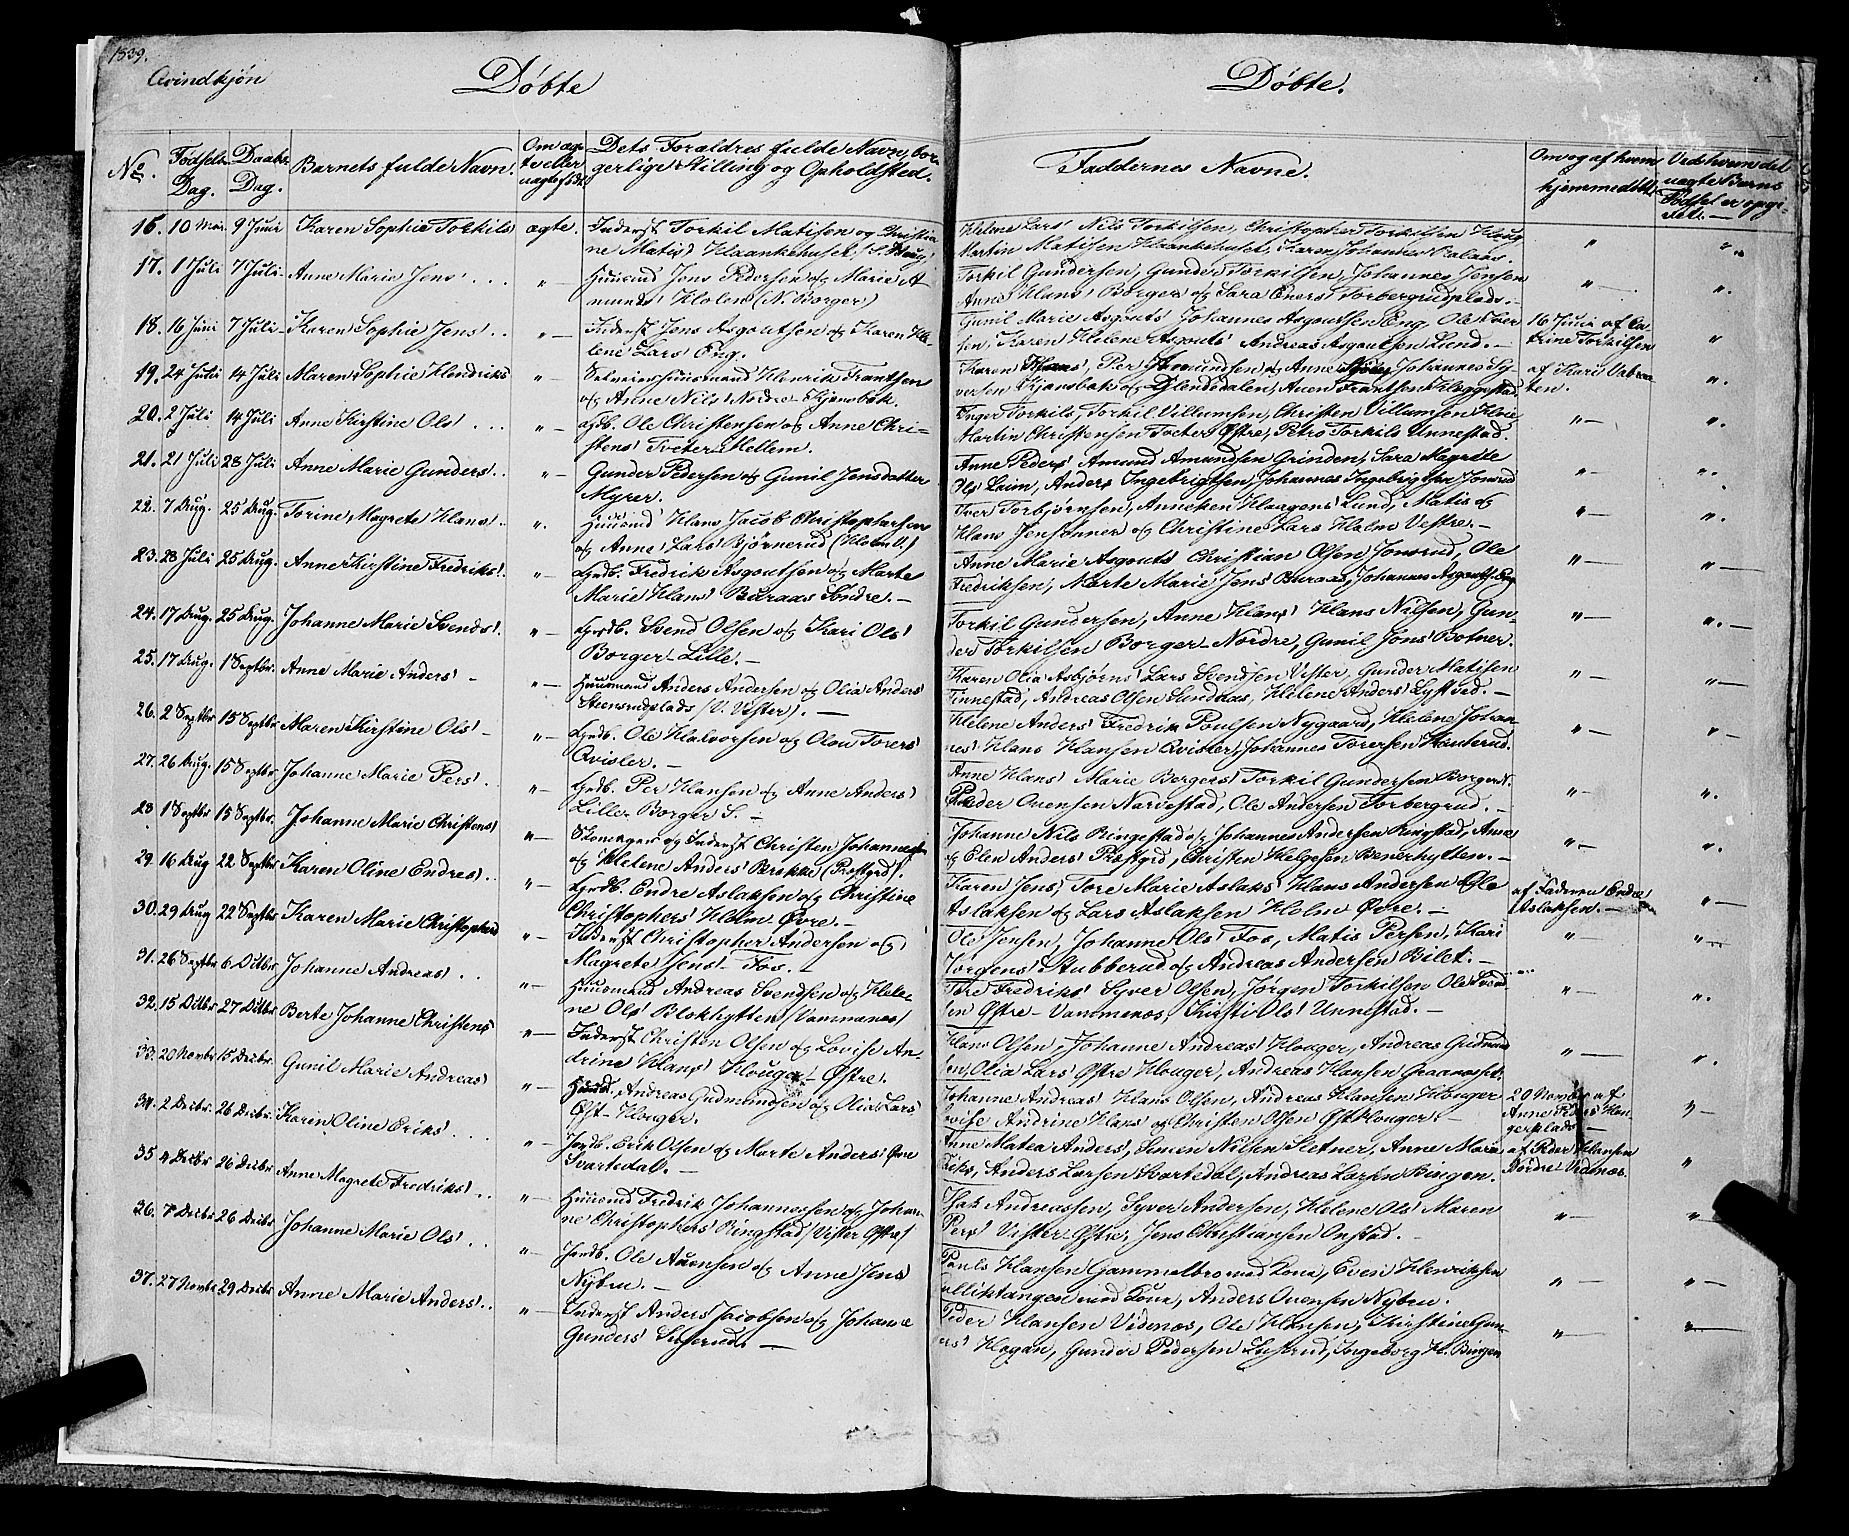 1839.
Qvindkjøn
Døbte
Døbte.
No.
Fødsels Dag.
Daabs Dag.
Barnets fulde Navn.
Om ægte eller uægte født
Dets Forældres fulde Navn, borgerlige Stilling og Opholdsted.
Faddernes Navne.
Om og af hvem hjemmedøbt
Ved hvem det uægte Barns Fødsel er opgivet.
16. 10 Mai 9 Juni Karen Sophie Torkils ægte. Inderst Torkil Matisen og Christia-
ne Matis' Haankehuset
Helene Lars' Nils Torkilsen, Christopher Torkilsen Houg
Martin Matisen Haankehuset, Karen Johannes
17. 1 Juli 7 Juli Anne Marie Jens' Huusmd Jens Pedersen og Marie A-
munds' Holen (N. Borger)
Torkil Gundersen, Gunder Torkilsen, Johannes Jensen
Anne Hans' Borger og Sara Eners' Torbergrudplads.
18. 16 Juni 7 Juli Karen Sophie Jens' Inderst Jens Asgoutsen og Karen He-
lene Lars' Eng.
Gunil Marie Asgouts' Johannes Asgoutsen Eng, Ole Iver-
sen, Karen Helene Asgouts' Andreas Asgoutsen Lund.
16 Juni af Ca-
trine Torkilsen
19. 24 Juli 14 Juli Maren Sophie Hendriks Selveierhuusmand Henrik Frantsen
og Anne Nils' Nedre Kjønsbæk.
Karen Per Amundsen og Anne Johannes Sy-
versen Kjønsbæk og Dylendsdalen, Anen Frantsen Heggestad.
af Kari
20. 2 Juli 14 Juli Anne Kirstine Ols' Gdb. Ole Christensen og Anne Chri-
stens' Tveter Mellem.
Inger Torkils, Torkil Villumsen, Christen Villumsen
Martin Christensen Tveter Østre, Petro Torkils Unnestad.
21. 21 Juli 28 Juli Anne Marie Gunders' Gunder Pedersen og Gunil Jensdatter
Myrer.
Anne Peders' Amund Amundsen Grinden, Sara Magrete
Ols' Leim, Anders Ingebrigtsen, Johannes Ingebrigtsen Jonsrud
22. 7 Aug. 25 Aug. Torine Magrete Hans' Huusmd Hans Jacob Christophersen
og Anne Lars' Bjørnerud (Holm V.)
Iver Torbjørnsen, Anneken Haagens' Lund, Matis og
Hans Jensønner og Christine Lars Holm Vestre.
23. 28 Juli 25 Aug. Anne Kirstine Fredriks' Grdb. Fredrik Asgoutsen og Marte
Marie Hans' Buraas Søndre.
Anne Marie Asgouts' Christian Olsen Jonsrud, Ole
Fredriksen, Marte Marie Jens' Buraas, Johannes Asgouts. Eng
24. 17 Aug. 25 Aug. Johanne Marie Svends' Grdb. Svend Olsen og Kari Ols'
Borger Lille.
Torkil Gundersen, Anne Hans' Hans Nilsen, Gun-
der Torkilsen Borger Nordre, Gunil Jons' Botner.
25. 17 Aug. 1 Septbr. Anne Marie Anders' Huusmand Anders Andersen og Olia Anders'
Steensrudplads (V. Vister).
Karen Olia Asbjørns' Lars Svendsen Vister, Gunder Matisen
Finnestad, Andreas Olsen Sundaas, Helene Anders' Lystad.
26. 2 Septbr 15 Septbr Maren Kirstine Ols' Grdb. Ole Halvorsen og Olou Torers'
Qvisler.
Helene Anders' Fredrik Poulsen Nygaard, Helene Johan-
nes' Hans Hansen Qvisler, Johannes Torersen Skouterud.
27. 26 Aug. 15 Septbr Johanne Marie Pers' Grdb. Per Hansen og Anne Anders'
Lille Borger S.
Anne Hans' Marie Bergers' Torkil Gundersen Borger N.
Peder Ouensen Narvestad, Ole Andersen Torbergrud.
28 1 Septbr 15 Septbr. Johanne Marie Christens' Skomager og Inderst Christen Johannesen
og Helene Anders' Brække (Præstgrd).
Johanne Nils' Ringestad og Johannes Andersen Ringstad, Anne
og Elen Anders' Præstgrd, Christen Helgesen Benerhytten.
29. 16 Aug 22 Septbr Karen Oline Endres' Grdb. Endre Aslaksen og Christine
Christophers' Holm Øvre.
Karen Jens' Tore Marie Aslaks' Hans Andersen Ole
Aslaksen og Lars Aslaksen Holm Øvre.
af Faderen Endre
Aslaksen.
30. 29 Aug 22 Septbr Karen Marie Christophers Inderst Christopher Andersen og
Magrete Jens' Fos.
Ole Jensen, Johanne Ols' Fos, Matis Persen, Kari
Jørgens' Stubberud og Andreas Andersen Bilet.
31. 26 Septbr 6 Octbr Johanne Andreas' Huusmand Andreas Svendsen og Hele-
ne Ols' Blokhytten (Vammenæs)
Tore Fredriks' Syver Olsen, Jørgen Torkilsen Ole Svend-
sen Østre Vammenæs, Kirsti Ols' Unnestad.
32. 15 Octbr 27 Octbr Berte Johanne Christens' Inderst Christen Olsen og Lovise An-
drine Hans' Houger Østre.
Hans Olsen, Johanne Andreas' Houger, Andreas Gudmund-
sen, Olia Lars' Østre Houger, Andreas Hansen
33. 20 Novbr 15 Decbr. Gunil Marie Andreas Huusmd. Andreas Gudmundsen og Olia Lars'
Øst-Houger.
Johanne Andreas' Hans Olsen, Andreas Hansen Houger
Lovise Andrine Hans' og Christen Olsen Øst Houger.
20 November af
Anne Peders' Hou-
gerplads
34. 2 Decbr. 26 Decbr. Karen Oline Eriks' Grdb. Erik Olsen og Marte Anders' Øvre
Svartedal.
Anne Matea Anders' Simen Nilsen Sletner, Anne Maria
Eriks, Anders Larsen Svartedal, Andreas Larsen Bingen.
af Peder Hansen
Nordre Vidnæs.
35 4 Decbr 26 Decbr Anne Magrete Fredriks' Huusmd Fredrik Johannessen og Johan-
ne Christophers' Ringstad (Vister Østre)
Isak Andreassen, Syver Andersen, Helene Ols' Maren
Pers' Vister Østre, Jens Christiansen Onstad.
36. 7 Decbr 26 Decbr Johanne Marie Ols' Grdb. Ole Auensen og Anne Jens'
Nyben.
Pouls Hansen Gammelbro med Kone, Even Henriksen
Kulliktangen med Kone, Anders Ouensen Nyben.
37. 27 Novbr 29 Decbr Anne Marie Anders' Inderst Anders Jacobsen og Johanne
Gunders' Lisserud.
Peder Hansen Vidnæs, Ole Hansen, Kirstine Gun-
ders' Hogan, Gunder Pedersen Lisserud, Ingeborg H. Bingen